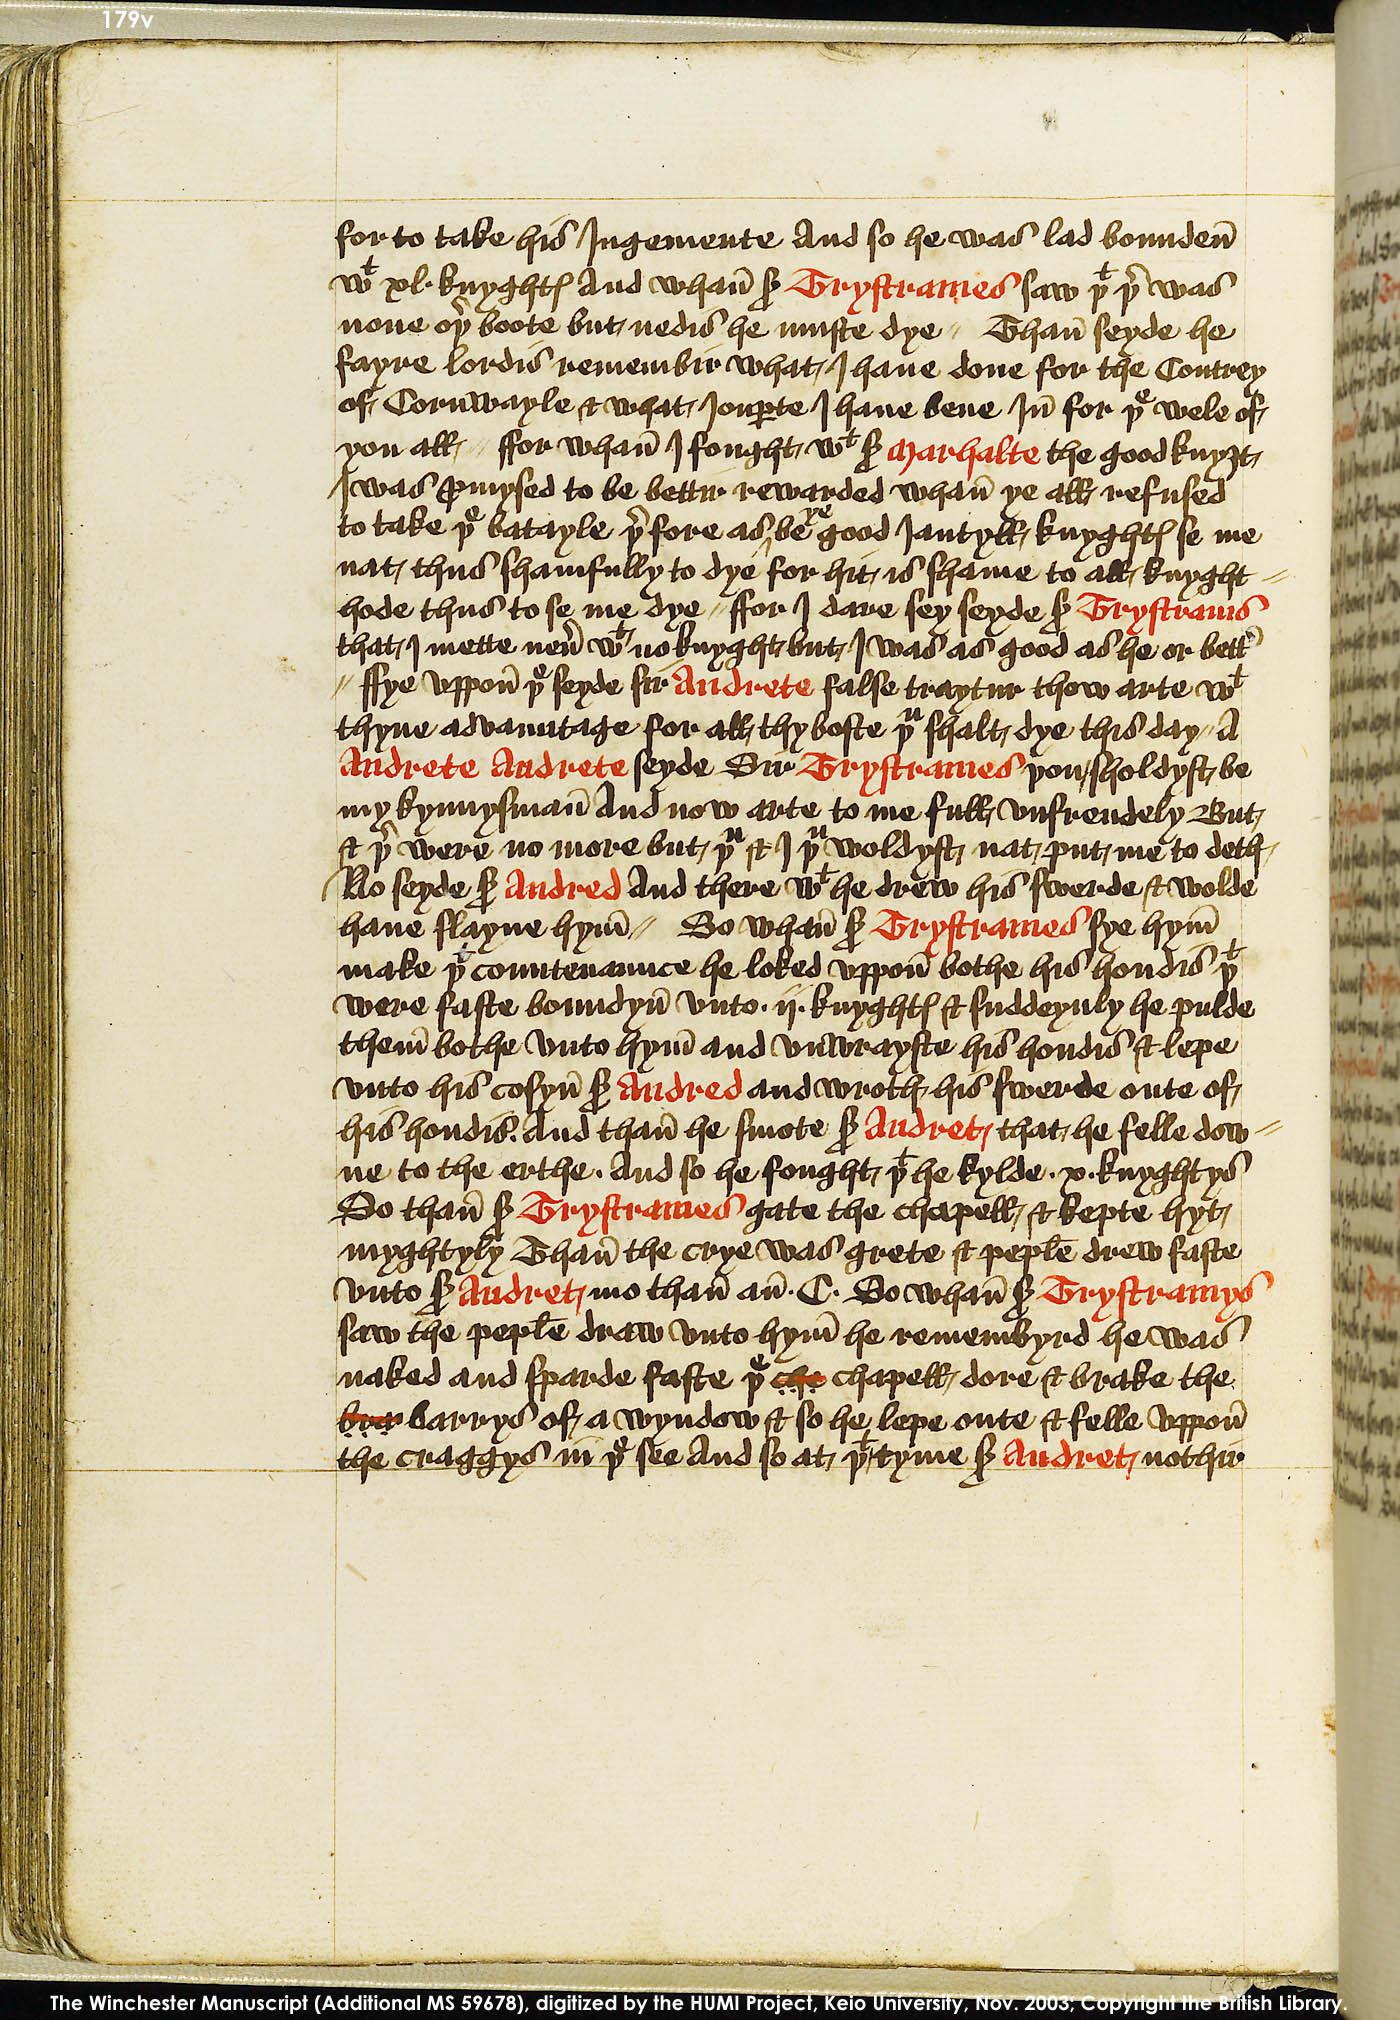 179v
for to take his Jugemente And so he was lad boundeñ
wᵗ xl. knyghtꝭ And whañ sᵉ Trystrames saw þᵗ þʳ was
none oþʳ boote but nedis he muste dye // Thañ seyde he
fayre lordis remembir what I haue done for the Contrey
of Cornwayle & what Jouꝑte I haue bene Iñ for þᵉ wele of
you all // ffor whañ I fought wᵗ sᵉ Marhalte the good knyȝt
I was ꝓmysed to be bettir rewarded whañ ye all refused
to take þᵉ batayle þʳfore as be ye good Jantyll knyghtꝭ se me
nat thus shamfully to dye for hit is shame to all knyght //
hode thus to se me dye // ffor I dare sey seyde sᵉ Trystrams
that I mette neuʳ wᵗ no knyght but I was as good as he or bettʳ
// ffye vppoñ þᵉ seyde sir Andrete false traytur thow arte wᵗ
thyne advauntage for all thy boste þᵘ shalt dye this day // A
Andrete Andrete seyde Sir Trystrames you sholdyst be
my kynnysmañ And now arte to me full vnfrendely But
& þʳ were no more but þᵘ & I þᵘ woldyst nat put me to deth
No seyde sᵉ Andred And there wᵗ he drew his swerde & wolde
haue slayne hym̄ // So whañ sᵉ Trystrames sye hym̄
make þᵗ countenaunce he loked vppoñ bothe his hondis þᵗ
were faste boundyñ vnto .ij. knyghtꝭ & suddeynly he pulde
them̄ bothe vnto hym̄ and vnwrayste his hondis & lepe
vnto his cosyñ sᵉ Andred and wroth his swerde oute of
his hondis. And thañ he smote sᵉ Andret that he felle dow //
ne to the erthe. And so he fought þᵗ he kylde .x. knyghtys
So thañ sᵉ Trystrames gate the chapell & kepte hyt
myghtyly Thañ the crye was grete & peple drew faste
vnto sᵉ Andret mo thañ añ .C. So whañ sᵉ Trystramys
saw the peple draw vnto hym̄ he remembyrd he was
naked and sparde faste þᵉ che chapell dore & brake the
brar barrys of a wyndow & so he lepe oute & felle vppoñ
the craggys in þᵉ see And so at þᵗ tyme sᵉ Andret nothir
The Winchester Manuscript (Additional MS 59678), digitized by the HUMI Project, Keio University, Nov. 2003; Copyright the British Library.